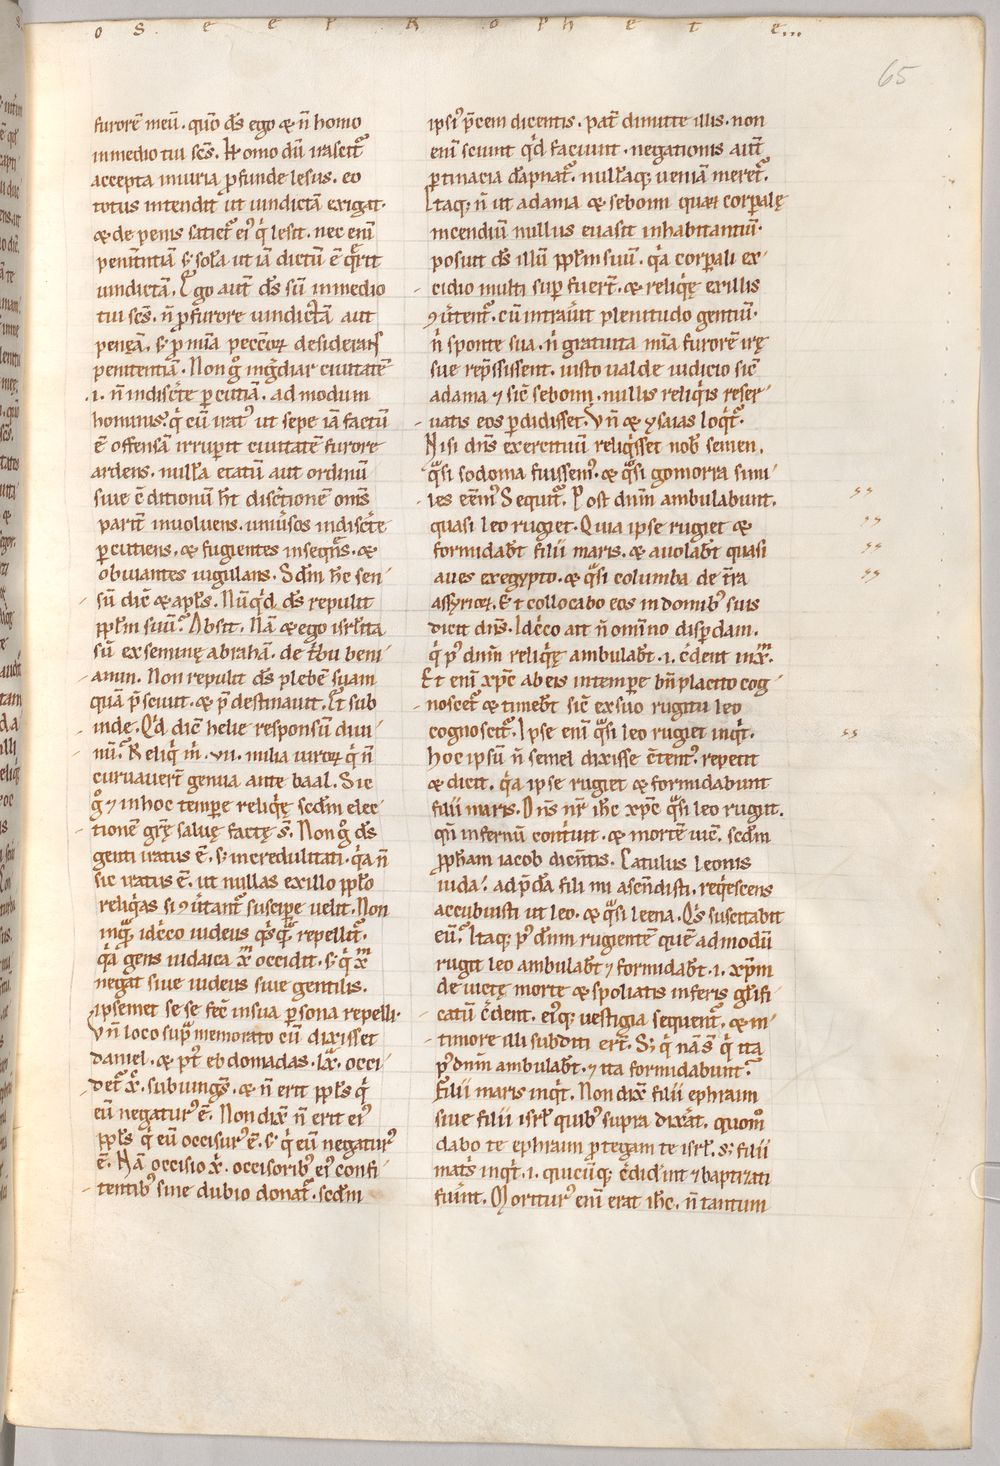 o s e e p R o p h e t e...
65
furorē meū. quō d̄s ego & n̄ homo
in medio tui sc̄s. Homo dū irascit̄
accepta iniuria p̄funde lesus. eo
totus intendit ut uindictā exigat.
& de penis satiet̄ ei' q̇ lesit. nec enī
penit̄ntiā s; sola ut iā dictū ē q̄rit
uindictā. Ego aut̄ d̄s sū in medio
tui sc̄s. n̄ p̄ furore uindictā aut
penā. s; p̄ mīa peccōꝝ desiderās
penitentiā. Non g̊ ing̊diar ciuitatē
.i. n̄ indiscrete pcutiā. ad modum
hominis. q̇ cū irat' ut sepe iā factū
ē offensā irruperit ciuitatē furore
ardens. nulla etatū aut ordinū
siue c̄ditionū h̄t discretionē om̄s
parit̄ inuoluens. uniūsos indiscrete
pcutiens. & fugientes insequēs. &
obuiantes iugulans. Scdm̄ h̄c sen-
sū dic̄ & apl̄s. Nūq̇d d̄s repulit
ppl̄m suū? Absit. Nā & ego isrl̄ita
sū ex semine abrahā. de t̄bu beni-
amin. Non repulit d̄s plebē suam
quā p̄sciuit. & p̄destinauit. Et sub
inde. Q̇d dic̄ helie responsū diui-
nū? Reliq̇ m̄. vii. milia uiroꝝ q̇ n̄
curuauer̄t genua ante baal. Sic
g̊ ⁊ in hoc tempe reliq̇ę scdm̄ elec-
tionē grē saluę factę s̄. Non g̊ d̄s
genti iratus ē. s; incredulitati. q̇a n̄
sic iratus ē. ut nullas ex illo ppl̄o
reliq̇as si ꝯūtant̄ suscipe uelit. Non
inquā idcco iudeus q̇sq̄ repellit̄.
q̇a gens iudaica xm̄ occidit. s; q̇ xm̄
negat siue iudeus siue gentilis.
ipsemet se se fec̄ in sua psona repelli.
Vn̄ loco sup̄ memorato cū dixisset
daniel. & p̄t ebdomadas. lxii. occi-
det̄ xc̄. subiungēs. & n̄ erit ppl̄s q̇
eū negatur' ē. Non dix̄ n̄ erit ei'
ppl̄s q̇ eū occisur' ē. s; q̇ eū negatur'
ē. Nā occisio xi. occisorib' ei' confi-
tentib' sine dubio donat̄. scdm̄
ipsi' p̄cem dicentis. pat̄ dimitte illis. non
enī sciunt q̇d faciunt. negationis aut̄
ptinacia dāpnat̄. nullāq; ueniā meret̄.
Itaq; n̄ ut adama & seboim quaꝝ corpale
incendiū nullus euasit inhabitantiū.
posuit d̄s illū ppl̄m suū. q̇a corpali ex-
cidio multi sup̄ fuer̄t. & reliq̇ę ex illis
ꝯūtent̄. cū intrauit plenitudo gentiū.
n̄ sponte sua. n̄ gratuita mīa furorē irę
sue rep̄ssissent. iusto ualde iudicio sic̄
adama ⁊ sic̄ seboim. nullis reliq̇is reser-
uatis eos pdidisset. Vn̄ & ysaias loq̇t̄.
Nisi dn̄s exercituū reliq̇sset nob̄ semen.
q̄si sodoma fuissem'. & q̄si gomorra simi-
les eēm'. Sequit̄. Post dnm̄ ambulabunt.
quasi leo rugiet. Quia ipse rugiet &
formidabt̄ filii maris. & auolabt̄ quasi
aues ex egypto. & q̄si columba de t̄ra
assyrioꝝ. Et collocabo eos in domib' suis
dicit dn̄s. Idcco ait n̄ omīno dispdam.
q̇ p' dnm̄ reliq̇ę ambulabt̄. i. c̄dent in xm̄.
Et enī xpc̄ ab eis in tempe bn̄placito cog-
noscet̄ & timebt̄ sic̄ ex suo rugitu leo
cognoscit̄. Ipse enī q̄si leo rugiet inq̇t.
hoc ipsū n̄ semel dixisse c̄tent'. repetit
& dicit. q̇a ipse rugiet & formidabunt
filii maris. Dn̄s nr̄ ih̄c xpc̄ q̄si leo rugiit.
qn̄ infernū cont̄uit. & mortē uic̄. scdm̄
pph̄am iacob dicn̄tis. Catulus leonis
iuda? ad p̄dā fili mi ascendisti. req̇escens
accubuisti ut leo. & q̄si leena. Q̇s suscitabit
eū? Itaq; p' dn̄m rugientē quēadmodū
rugit leo ambulabt̄ ⁊ formidabt̄. i. xpm̄
deuicta morte & spoliatis inferis gl̄ifi-
catū c̄dent. ei'q; uestigia sequent̄. & in
timore illi subditi er̄t. S; q̇ nā s̄ q̇ ita
p' dnm̄ ambulabt̄. ⁊ ita formidabunt?
Filii maris inq̇t. Non dix̄ filii ephraim
siue filii isrl̄ quib' supra dixāt. quom̊
dabo te ephraim ptegam te isrl̄. s; filii
maris inq̇t. i. quicūq; c̄did̄int ⁊ baptizati
fuīnt. Moritur' enī erat ih̄c. n̄ tantum